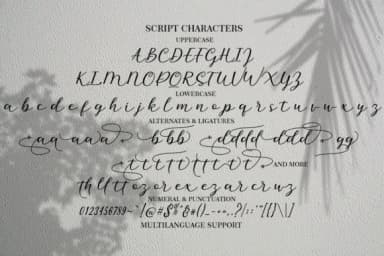 SCRIPT CHARACTERS
UPPERCASE
ABCDEFGHIJ
KLMNOPQRSTUVWXYZ
LOWERCASE
abcdefghijklmnopqrstuvwxyz
ALTERNATES & LIGATURES
aa aaaa bbb dddd ddd gg
AND MORE
NUMERAL & PUNCTUATION
0123456789
MULTILANGUAGE SUPPORT